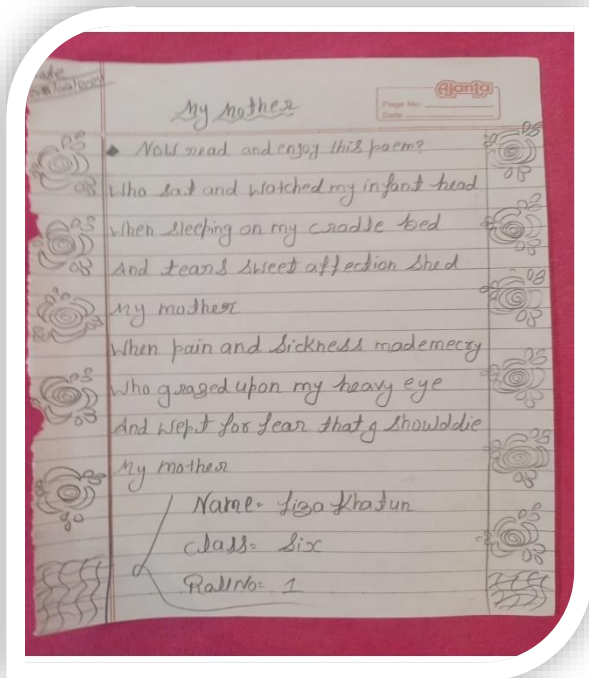 Ajanta
Page No.
Date
My Mother
• Now read and enjoy this poem?
Who sat and watched my infant head
When sleeping on my cradle bed
And tears sweet affection shed
My mother
When pain and sickness mademecry
Who geazed upon my heavy eye
And wept for fear that g showlddie
My mother
Name- Liza Khatun
Class= Six
RollNo= 1